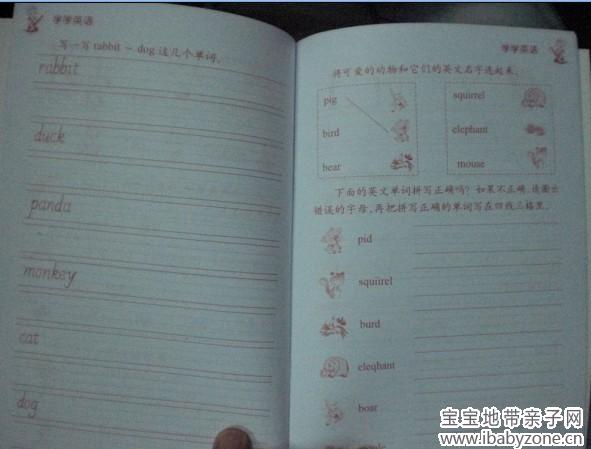 学学英语
写一写 rabbit ~ dog 这几个单词。
rabbit
duck
panda
monkey
cat
dog
学学英语
将可爱的动物和它们的英文名字连起来。
pig
bird
bear
squirrel
elephant
mouse
下面的英文单词拼写正确吗？如果不正确，请圈出
错误的字母，再把拼写正确的单词写在四线三格里。
pid
squiirel
burd
eleqhant
boar
宝宝地带亲子网
www.ibabyzone.cn